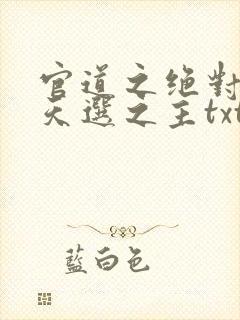 官道之绝對
天選之主txt
藍白色